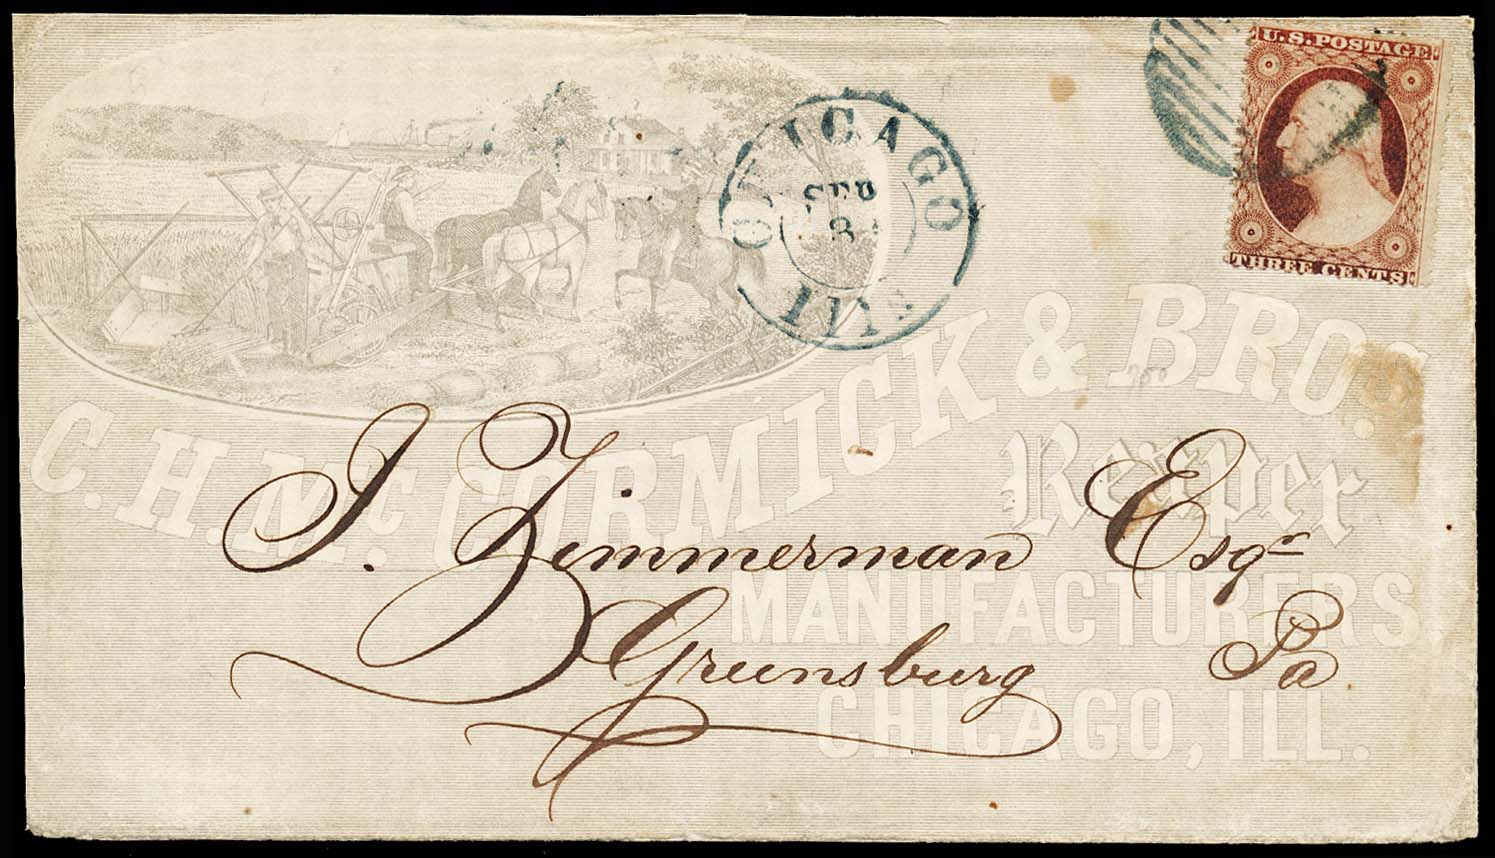 U.S. POSTAGE
THREE CENTS
CHICAGO
SEP
8
ILLS
C. H. Mc CORMICK & BRO'S
Reaper
MANUFACTURERS
CHICAGO, ILL.
J. Zimmerman Esqr
Greensburg Pa